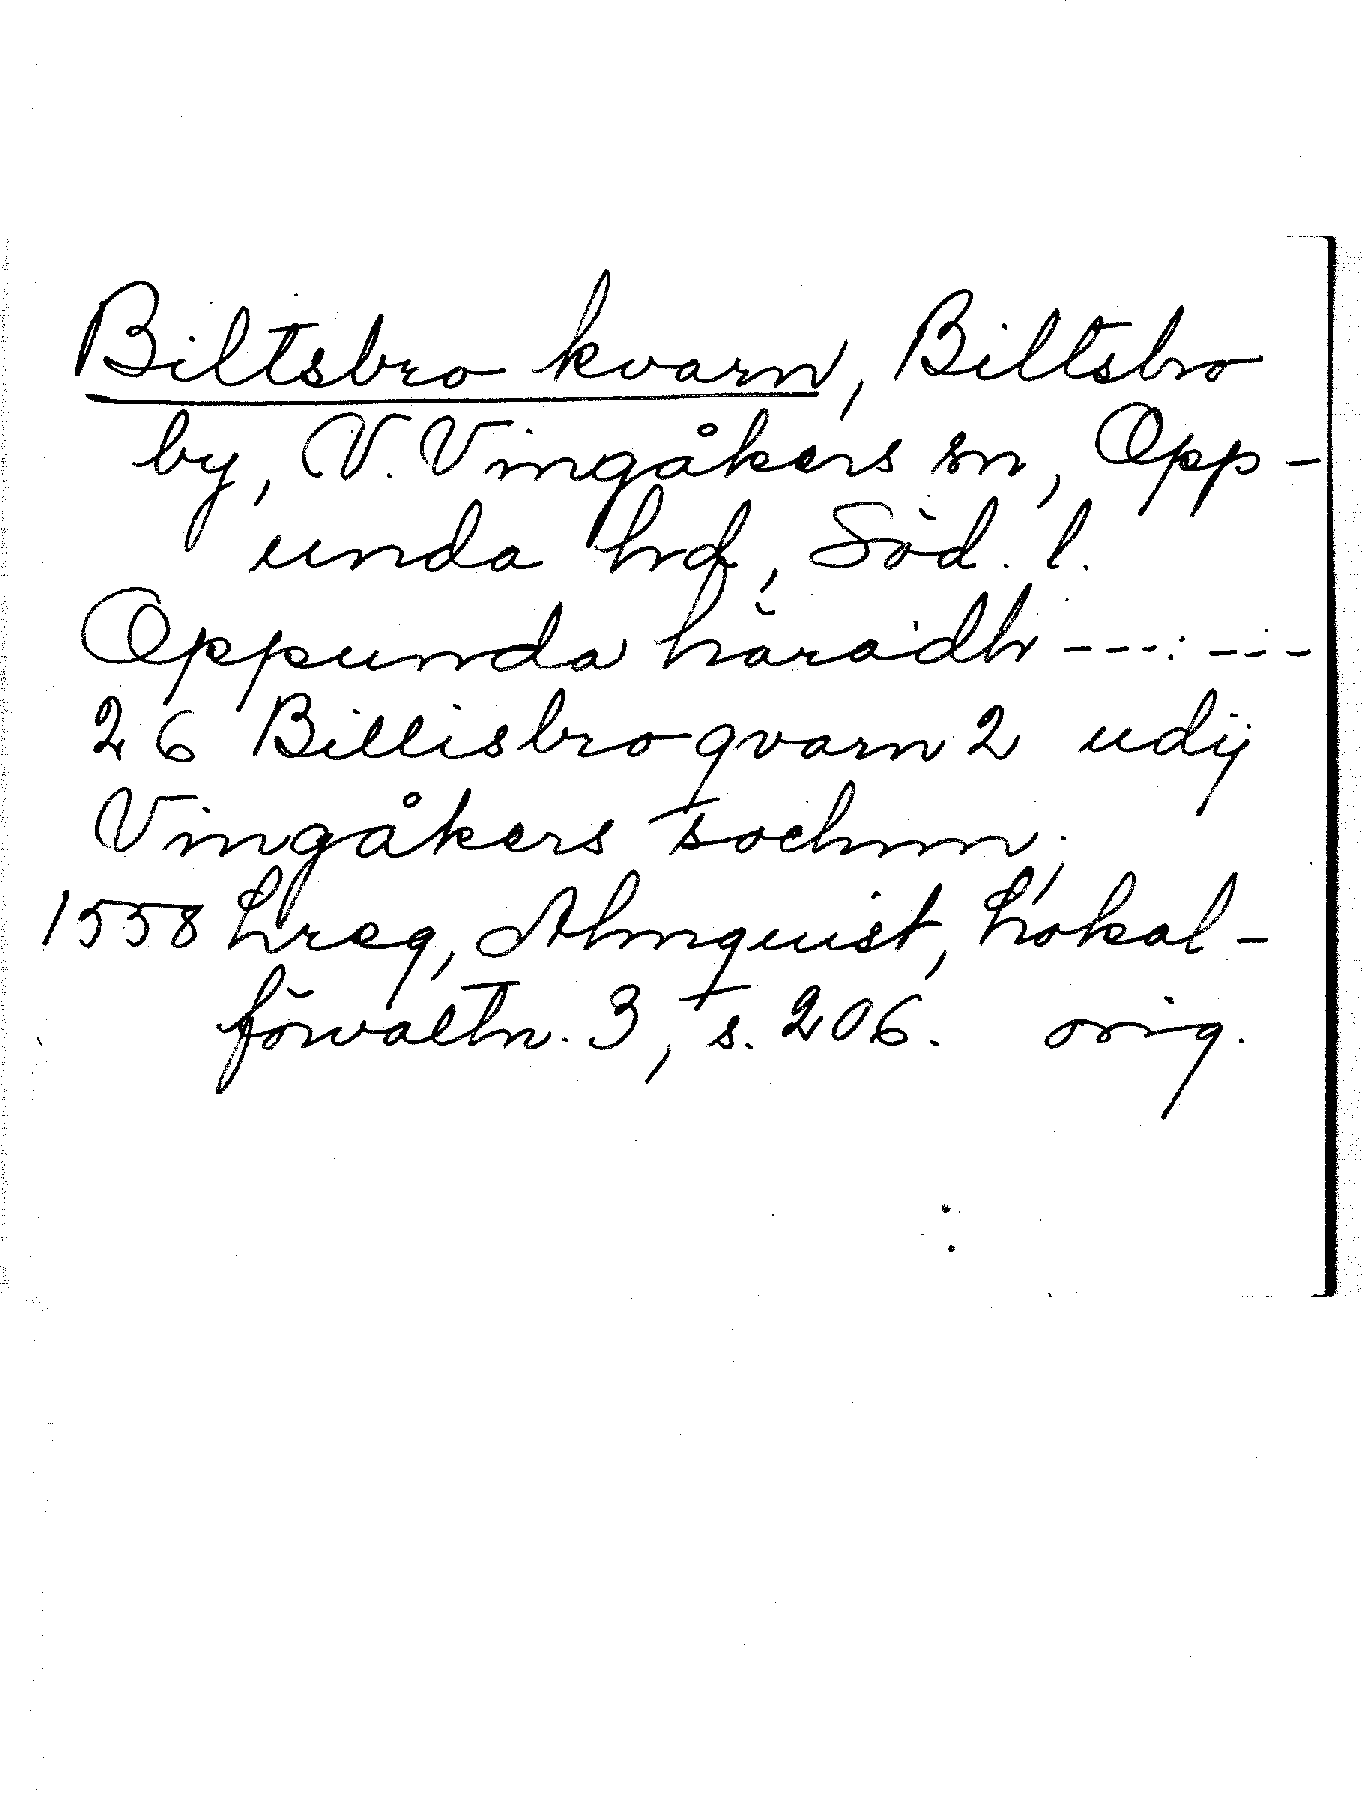 Biltsbro kvarn, Biltsbro
by, V. Vingåkers sn, Opp-
unda hd, Söd. l.
Oppunda häradh ---:---
26 Billisbro qvarn 2 udij
Vingåkers sochnn.
1558 Lreg, Almquist, Lokal-
förvaltn. 3, s. 206. orig.